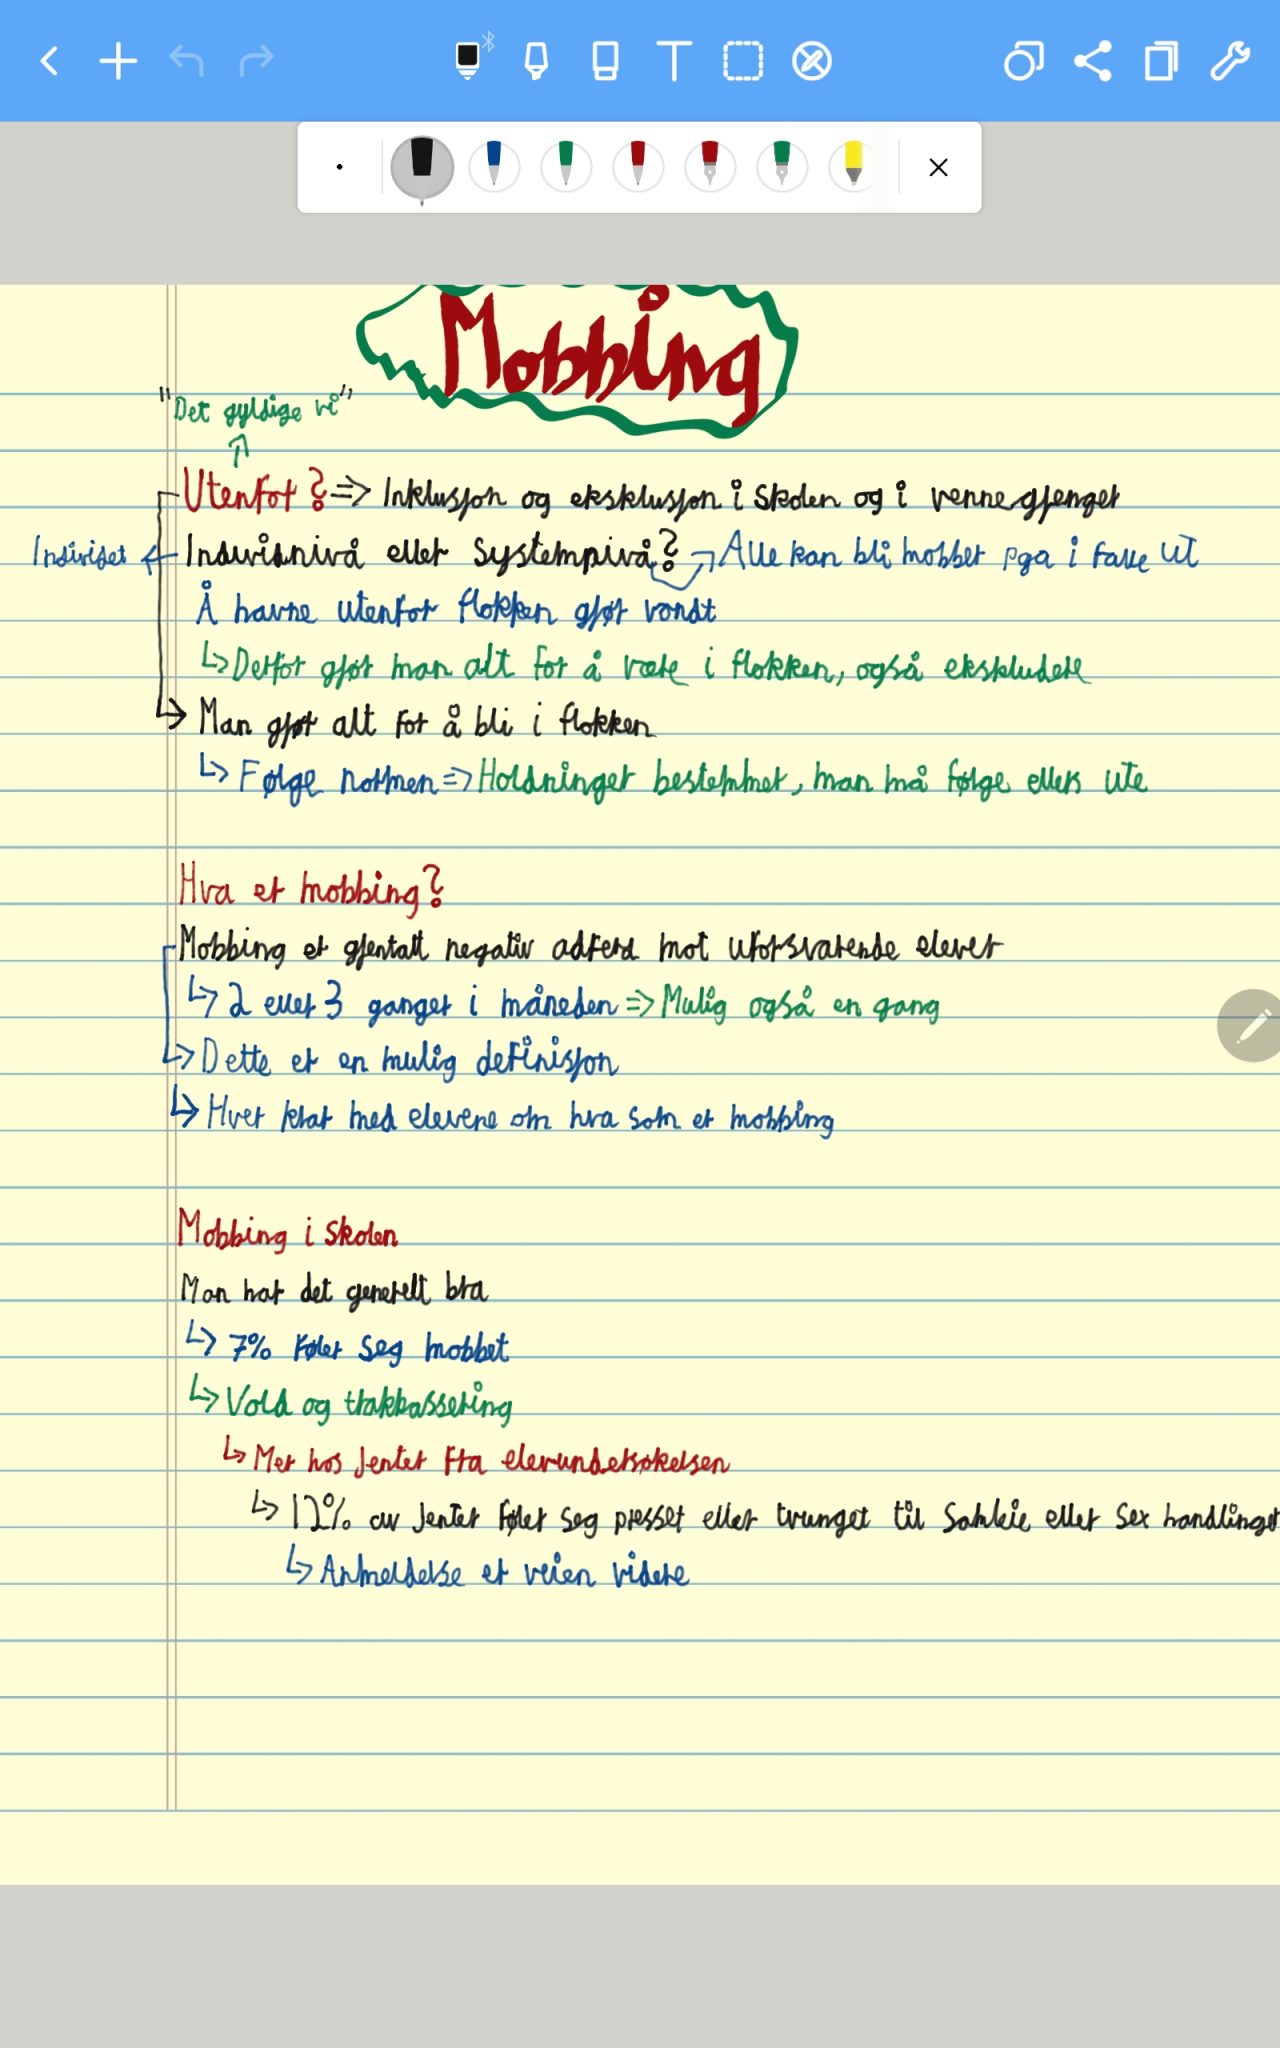 Mobbing
"Det gyldige vi"
Utenfor? => Inklusjon og eksklusjon i skolen og i vennegjenger
Individet
Individnivå eller Systemnivå? Alle kan bli mobbet pga i falle ut
Å havne utenfor flokken gjør vondt
Derfor gjør man alt for å være i flokken, også ekskludere
Man gjør alt for å bli i flokken
Følge normen => Holdninger bestemmer, man må følge ellers ute
Hva er mobbing?
Mobbing er gjentatt negativ adferd mot uforsvarende elever
2 eller 3 ganger i måneden => Mulig også en gang
Dette er en mulig definisjon
Hver klar med elevene om hva som er mobbing
Mobbing i skolen
Man har det generelt bra
7% føler seg mobbet
Vold og trakkassering
Mer hos jenter fra elevundersøkelsen
12% av jenter føler seg presset eller tvunget til samleie eller sex handlinger
Anmeldelse er veien videre